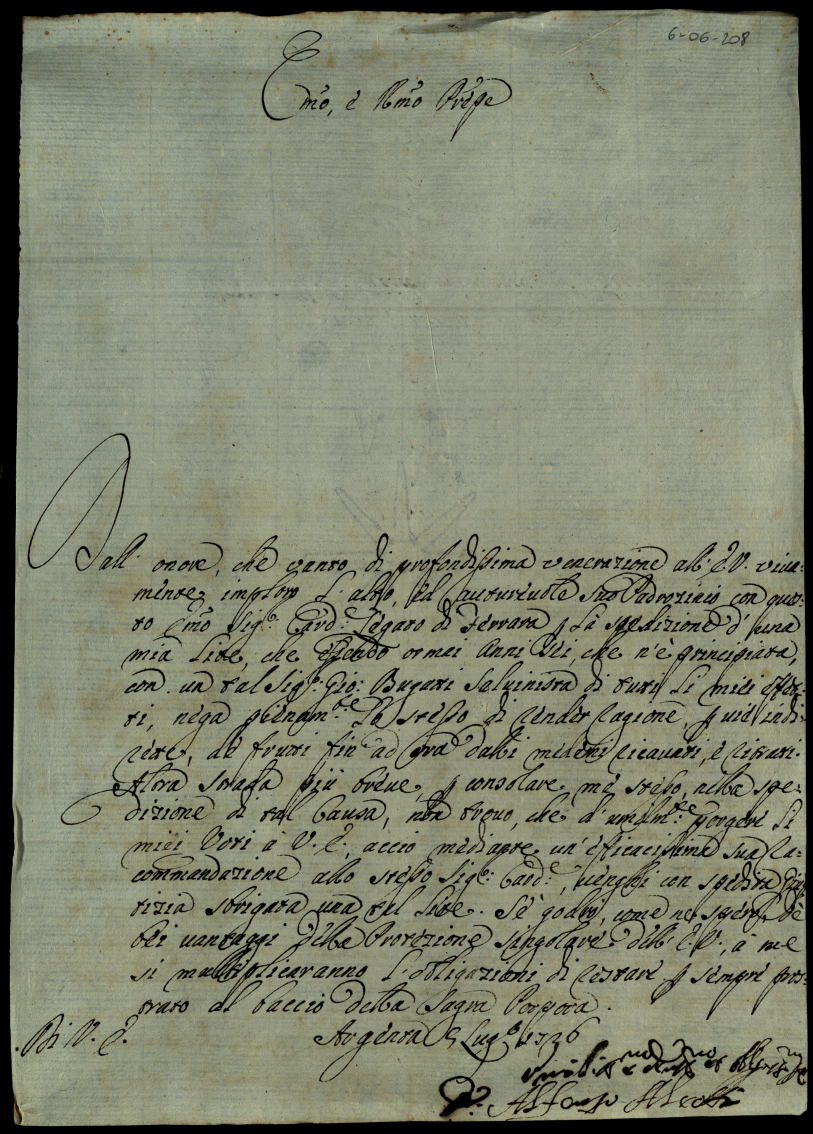 6-06-208
Emo, è Rmo Prñpe
Dall' onore, che vanto di profondissima venerazione all' E.V. viva=
mente imploro l'alto, ed auturevole Suo Padrozinio con ques=
to Emo Sig.r Card.e Legato di Ferrara p la spedizione d' una
mia Lite, che essendo ormai Anni Sei, che n'è principiata,
con un tal Sig.r Gio: Bugati Salvinista di tuti li miei effet=
ti, nega pienam.te lo stesso di render ragione, p vie indi=
rete, de frutti fin ad ora dalli medemi ricavati, e ritrati.
Altra strada più breve, p consolare me stesso, nella spe=
dizione di tal Causa, non trovo, che d' umilm.te porgere li
miei Voti à V. E., acciò mediante un' eficacissima sua Ra=
commandazione allo stesso Sig.r Card.e, venghi con spedita Giu=
tizia sbrigata una tal Lite. Se godrò, come ne spero, de
lli vantaggi della Protezione singolare dell' E.V., à me
si multiplicaranno l'obligazioni di restare p sempre pros=
trato al baccio della Sagra Porpora.
Di V. E. Argenta 5 Lug.o 1736
Alfonso